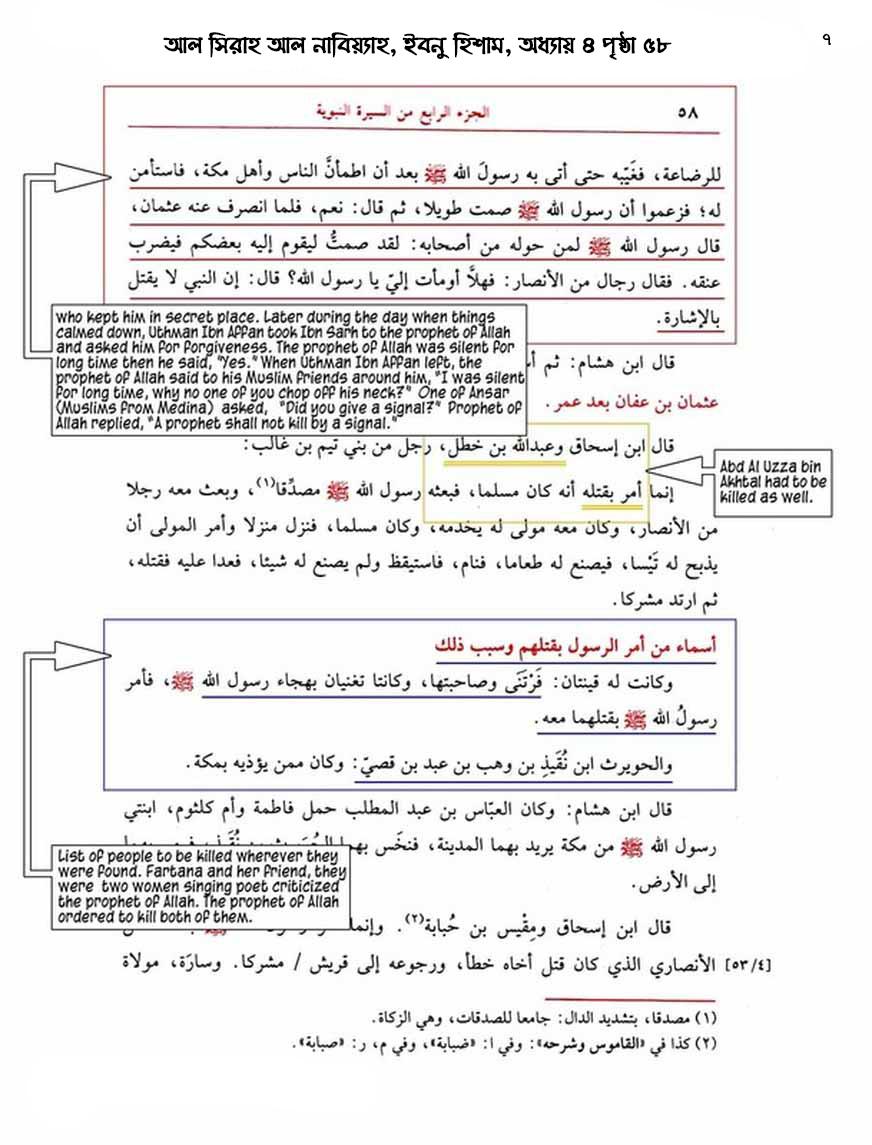 আল সিরাহ আল নাবিয়্যাহ, ইবনু হিশাম, অধ্যায় ৪ পৃষ্ঠা ৫৮
৭
٥٨
الجزء الرابع من السيرة النبوية
للرضاعة، فغَيّبه حتى أتى به رسولَ الله ﷺ بعد أن اطمأنَّ الناس وأهل مكة، فاستأمن
له؛ فزعموا أن رسول الله ﷺ صمت طويلا، ثم قال: نعم، فلما انصرف عنه عثمان،
قال رسول الله ﷺ لمن حوله من أصحابه: لقد صمتُّ ليقوم إليه بعضكم فيضرب
عنقه. فقال رجال من الأنصار: فهلاَّ أومأت إليّ يا رسول الله؟ قال: إن النبي لا يقتل
بالإشارة.
who kept him in secret place. Later during the day when things
calmed down, Uthman Ibn Affan took Ibn Sarh to the prophet of Allah
and asked him for forgiveness. The prophet of Allah was silent for
long time then he said, "Yes." When Uthman Ibn Affan left, the
prophet of Allah said to his Muslim friends around him, "I was silent
for long time, why no one of you chop off his neck?" One of Ansar
(Muslims from Medina) asked, "Did you give a signal?" Prophet of
Allah replied, "A prophet shall not kill by a signal."
قال ابن هشام: ثم
عثمان بن عفان بعد عمر.
قال ابن إسحاق وعبدالله بن خطل، رجل من بني تيم بن غالب:
إنما أمر بقتله أنه كان مسلما، فبعثه رسول الله ﷺ مصدِّقا(١)، وبعث معه رجلا
من الأنصار، وكان معه مولى له يخدمه، وكان مسلما، فنزل منزلا وأمر المولى أن
يذبح له تَيْسا، فيصنع له طعاما، فنام، فاستيقظ ولم يصنع له شيئا، فعدا عليه فقتله،
ثم ارتد مشركا.
Abd Al Uzza bin
Akhtal had to be
killed as well.
أسماء من أمر الرسول بقتلهم وسبب ذلك
وكانت له قينتان: فَرْتَنَى وصاحبتها، وكانتا تغنيان بهجاء رسول الله ﷺ، فأمر
رسولُ الله ﷺ بقتلهما معه.
والحويرث ابن نُقَيذِ بن وهب بن عبد بن قصيّ: وكان ممن يؤذيه بمكة.
قال ابن هشام: وكان العبّاس بن عبد المطلب حمل فاطمة وأم كلثوم، ابنتي
رسول الله ﷺ من مكة يريد بهما المدينة، فنخَس بهما
إلى الأرض.
List of people to be killed wherever they
were found. Fartana and her friend, they
were two women singing poet criticized
the prophet of Allah. The prophet of Allah
ordered to kill both of them.
قال ابن إسحاق ومِقْيس بن حُبابة(٢). وإنما
[٥٣/٤] الأنصاري الذي كان قتل أخاه خطأ، ورجوعه إلى قريش / مشركا. وسارَة، مولاة
(١) مصدقا، بتشديد الدال: جامعا للصدقات، وهي الزكاة.
(٢) كذا في «القاموس وشرحه»: وفي ا: «ضبابة»، وفي م، ر: «صبابة».